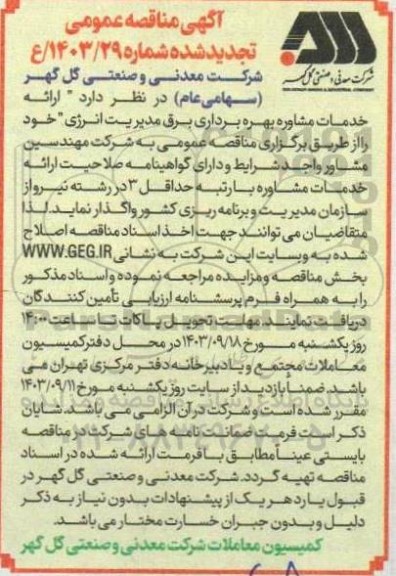 آگهی مناقصه عمومی
تجدید شده شماره ۱۴۰۳/۲۹/ع
شرکت معدنی و صنعتی گل گهر
شرکت معدنی و صنعتی گل گهر
(سهامی عام) در نظر دارد " ارائه
خدمات مشاوره بهره برداری برق مدیریت انرژی" خود
را از طریق برگزاری مناقصه عمومی به شرکت مهندسین
مشاور واجد شرایط و دارای گواهینامه صلاحیت ارائه
خدمات مشاوره با رتبه حداقل ۳ در رشته نیرو از
سازمان مدیریت و برنامه ریزی کشور واگذار نماید. لذا
متقاضیان می توانند جهت اخذ اسناد مناقصه اصلاح
شده به وبسایت این شرکت به نشانی WWW.GEG.IR
بخش مناقصه و مزایده مراجعه نموده و اسناد مذکور
را به همراه فرم پرسشنامه ارزیابی تأمین کنندگان
دریافت نمایند. مهلت تحویل پاکات تا ساعت ۱۴:۰۰
روز یکشنبه مورخ ۱۴۰۳/۰۹/۱۸ در محل دفتر کمیسیون
معاملات مجتمع و یا دبیرخانه دفتر مرکزی تهران می
باشد. ضمناً بازدید از سایت روز یکشنبه مورخ ۱۴۰۳/۰۹/۱۱
مقرر شده است و شرکت در آن الزامی می باشد. شایان
ذکر است فرمت ضمانت نامه های شرکت در مناقصه
بایستی عیناً مطابق با فرمت ارائه شده در اسناد
مناقصه تهیه گردد. شرکت معدنی و صنعتی گل گهر در
قبول یا رد هر یک از پیشنهادات بدون نیاز به ذکر
دلیل و بدون جبران خسارت مختار می باشد.
کمیسیون معاملات شرکت معدنی و صنعتی گل گهر